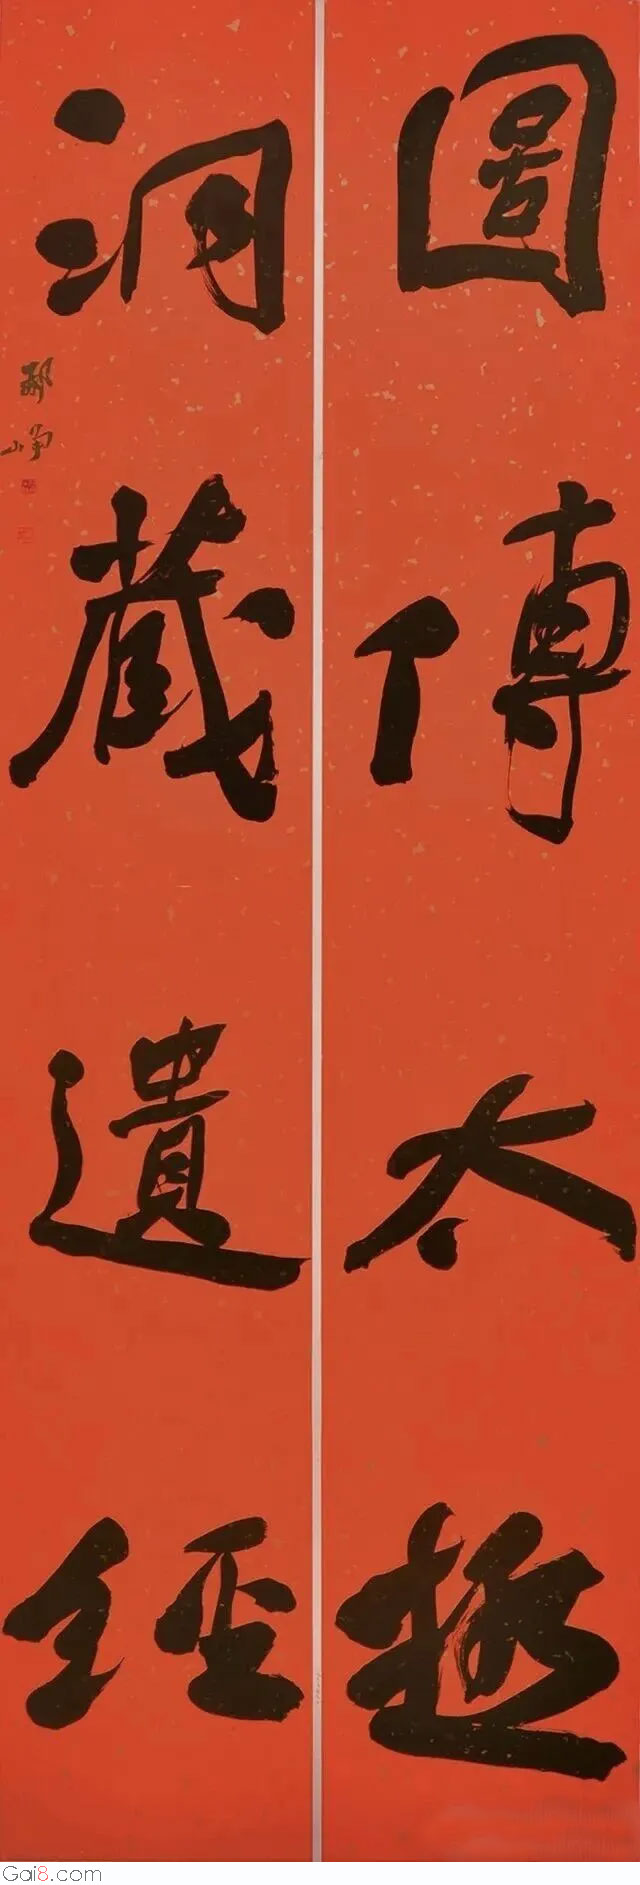 圖傳太極
洞藏遺經
Gai8.com